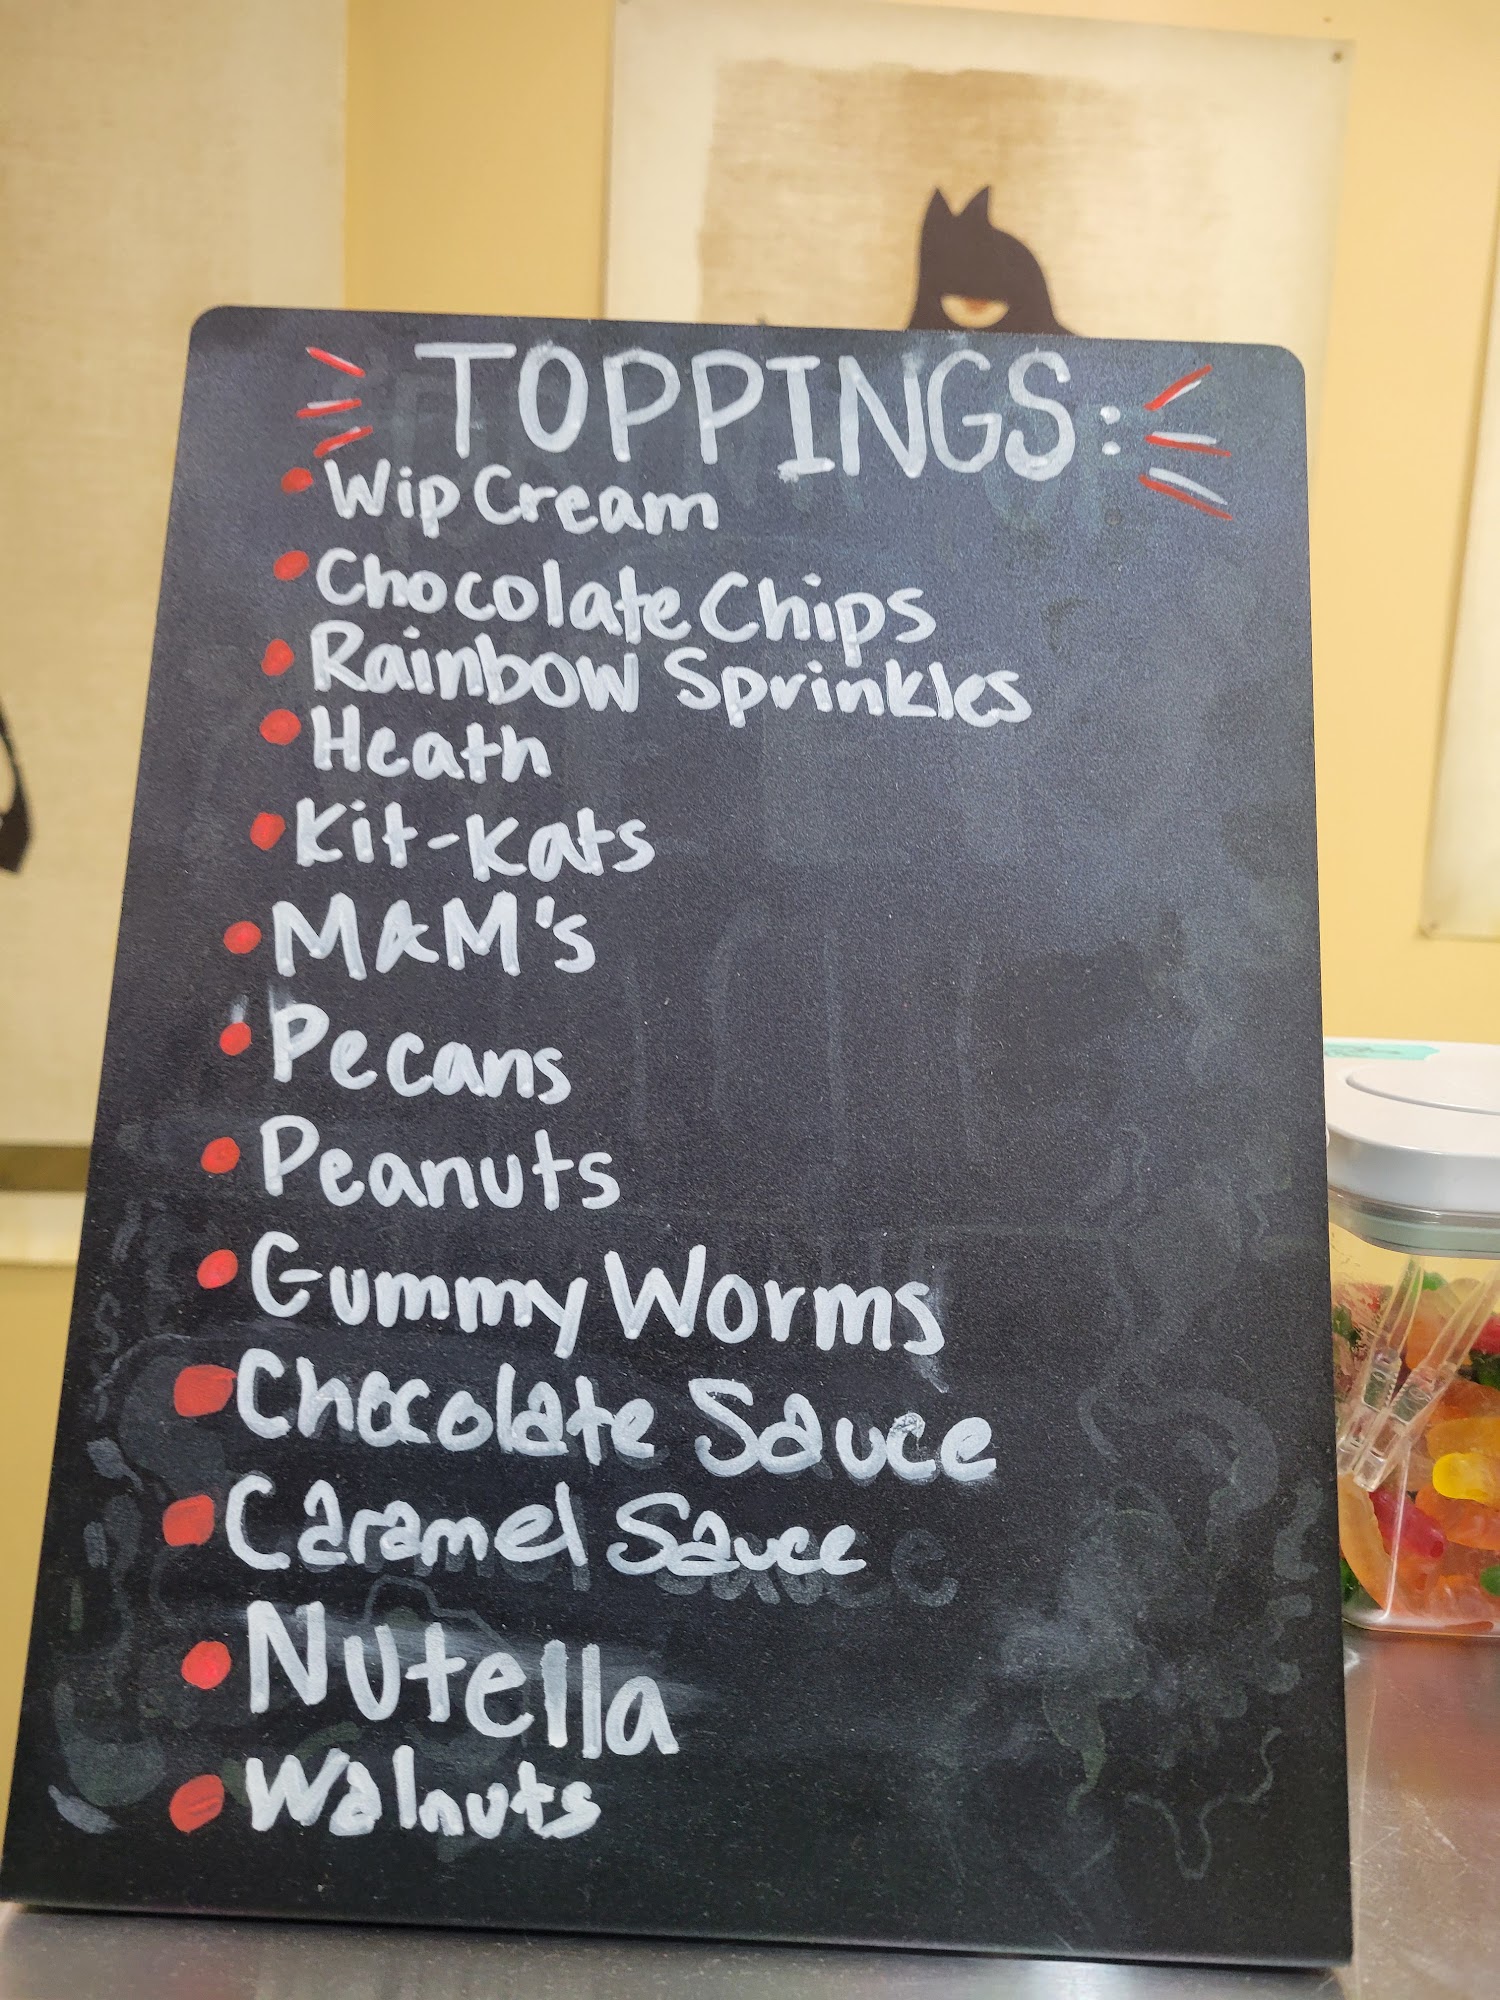 TOPPINGS:
Wip Cream
Chocolate Chips
Rainbow Sprinkles
Heath
Kit-Kats
M&M's
Pecans
Peanuts
Gummy Worms
Chocolate Sauce
Caramel Sauce
Nutella
Walnuts